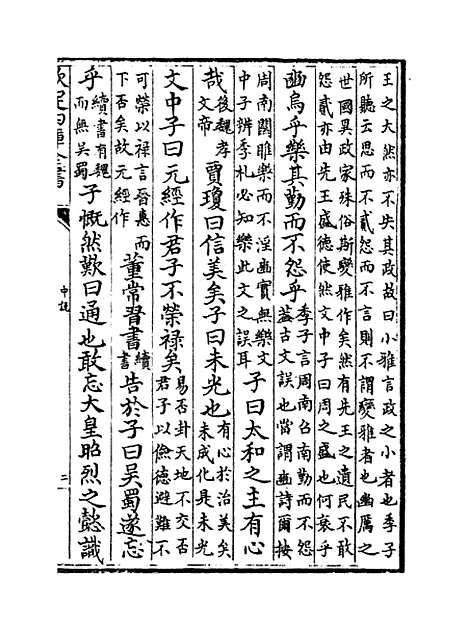 王之大然亦不失其政故曰小雅言政之小者也季子
所聽云思而不貳怨而不言則不謂變雅者也幽厲之
世國異政家殊俗斯變雅作矣然有先王之遺民不敢
怨貳亦由先王盛德使然文中子曰周之盛也何衰乎
豳烏乎樂其勤而不怨乎季子言周南召南勤而不怨
葢古文誤也當謂豳詩爾按
周南關雎樂而不淫豳實無樂文
中子辨季札必知樂此文之誤耳子曰太和之主有心
哉後魏孝
文帝賈瓊曰信美矣子曰未光也有心於治美矣
未成化是未光
文中子曰元經作君子不榮祿矣易否卦天地不交否
君子以儉德避難不
可榮以祿言晉惠而
下否矣故元經作董常習書續
書告於子曰吳蜀遂忘
乎續書有魏
而無吳蜀子慨然歎曰通也敢忘大皇昭烈之懿識
中說